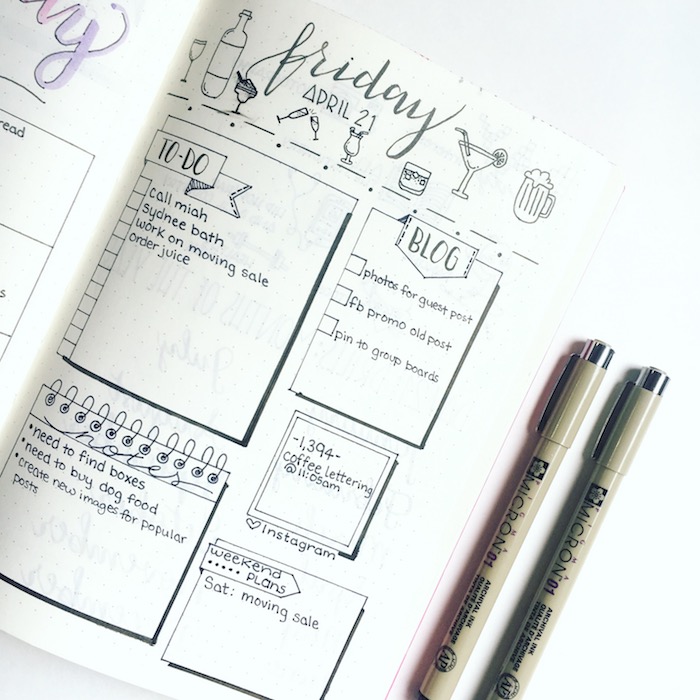 day
read
s
friday
APRIL 21
TO-DO
call miah
sydnee bath
work on moving sale
order juice
BLOG
photos for guest post
fb promo old post
pin to group boards
notes
•need to find boxes
•need to buy dog food
•create new images for popular
posts
-1,394-
coffee lettering
@11:05am
♡Instagram
weekend
plans
Sat: moving sale
MICRON 01
ARCHIVAL INK
QUALITÉ D'ARCHIVAGE
MICRON 01
ARCHIVAL INK
QUALITÉ D'ARCHIVAGE